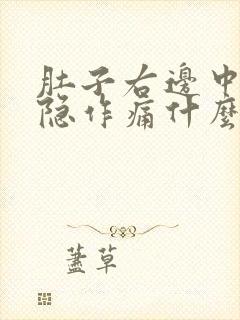 肚子右邊中
隐作痛什麼
蓋草